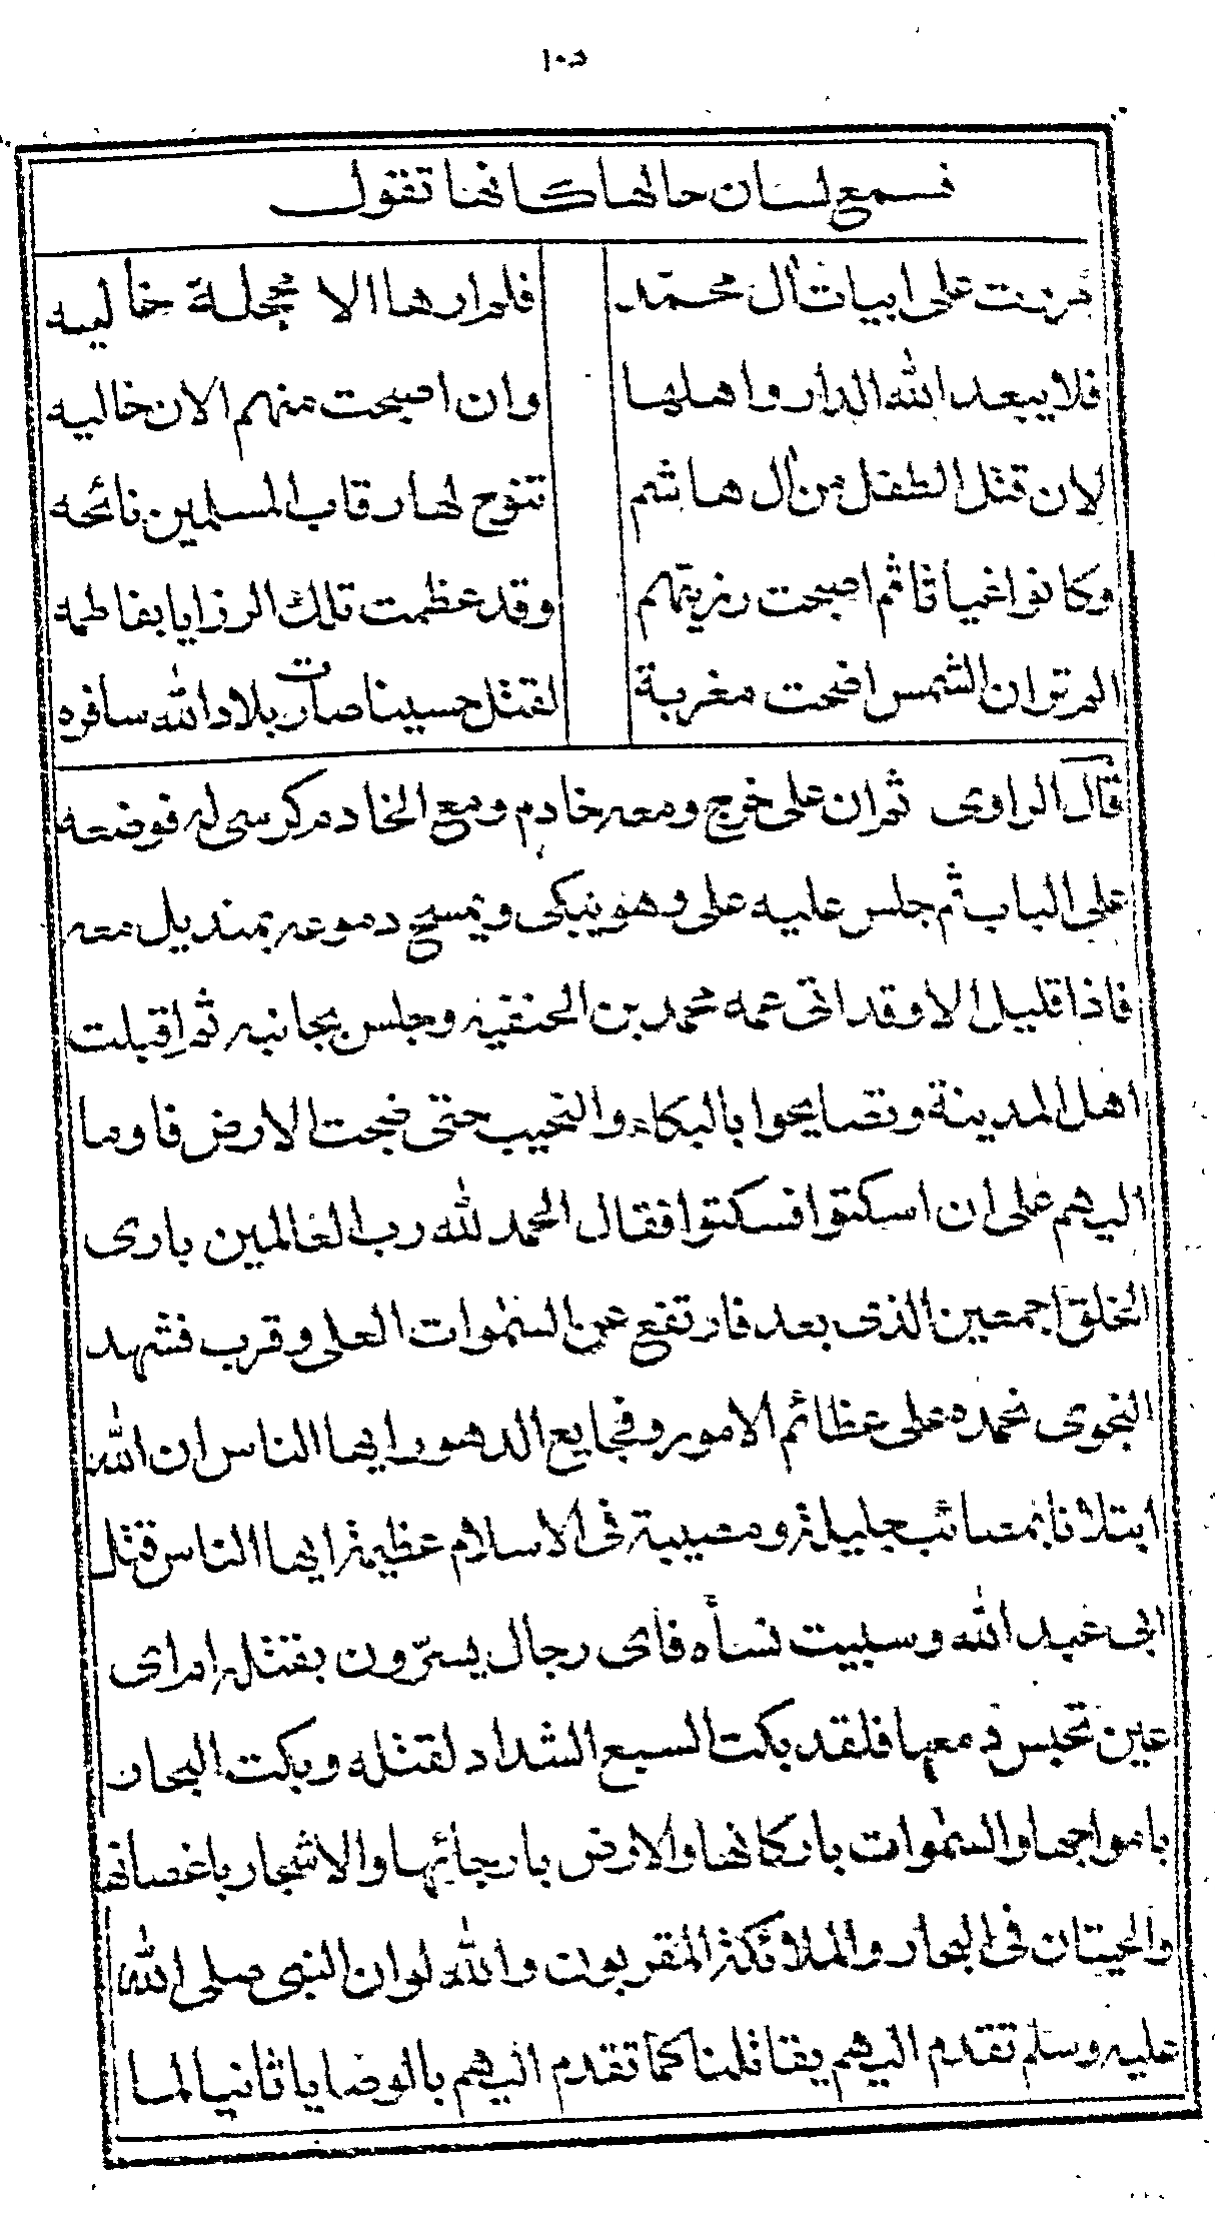 ١٠٥
فسمع لسان حالها كانها تقول
مررت على ابيات آل محمد فلم ارها الا مجملة خاليه
فلا يبعد الله الدار واهلها وان اصبحت منهم الان خاليه
لان قتل الطفل من آل هاشم تنوح لها رقاب المسلمين نائحه
وكانوا غياثا ثم اصبحت رزيتهم وقد عظمت تلك الرزايا بفاطمه
الم تر ان الشمس اضحت مغربة لقتل حسين صارت بلاد الله سافره
قال الراوى ثم ان على خرج ومعه خادم ومع الخادم كرسى له فوضعه
على الباب ثم جلس عليه على وهو يبكى ويمسح دموعه بمنديل معه
فاذا قليل الا وقد اتى عمه محمد بن الحنفيه وجلس بجانبه ثم اقبلت
اهل المدينة وتصايحوا بالبكاء والنحيب حتى ضجت الارض فاوما
اليهم على ان اسكتوا فسكتوا فقال الحمد لله رب العالمين بارى
الخلق اجمعين الذى بعد فارتفع عن السموات العلى وقرب فشهد
النجوى نحمده على عظائم الامور وفجايع الدهور ايها الناس ان الله
ابتلانا بمصائب جليلة ومصيبة فى الاسلام عظيمة ايها الناس قتل
ابى عبد الله وسبيت نسأه فاى رجال يسرّون بقتله ام اى
عين تحبس دمعها فلقد بكت السبع الشداد لقتله وبكت البحار
بامواجها والسموات باركانها والارض بارجائها والاشجار باغصانها
والحيتان فى البحار والملائكة المقربون والله لو ان النبى صلى الله
عليه وسلم تقدم اليهم يقاتلنا كما تقدم اليهم بالوصايا ثانيا لما